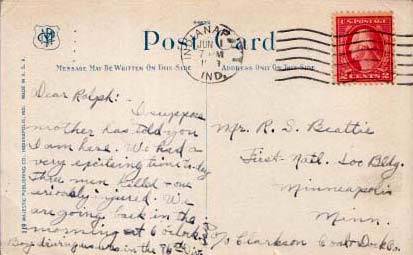 Post Card
MESSAGE MAY BE WRITTEN ON THIS SIDE
ADDRESS ONLY ON THIS SIDE
INDIANAPOLIS
JUN 1
7 PM
IND.
U.S. POSTAGE
2 CENTS 2
MADE IN U.S.A.
119 MAJESTIC PUBLISHING CO., INDIANAPOLIS, IND.
Dear Ralph:-
I suppose
mother has told you
I am here. We had a
very exciting time today
three men killed - one
seriously injured. We
are going back in the
morning at 6 o'clock.
Boys driving us home in the
Mr. R. S. Beattie
First Natl. Soo Bldg.
Minneapolis
Minn.
c/o Clarkson Coal & Dock Co.